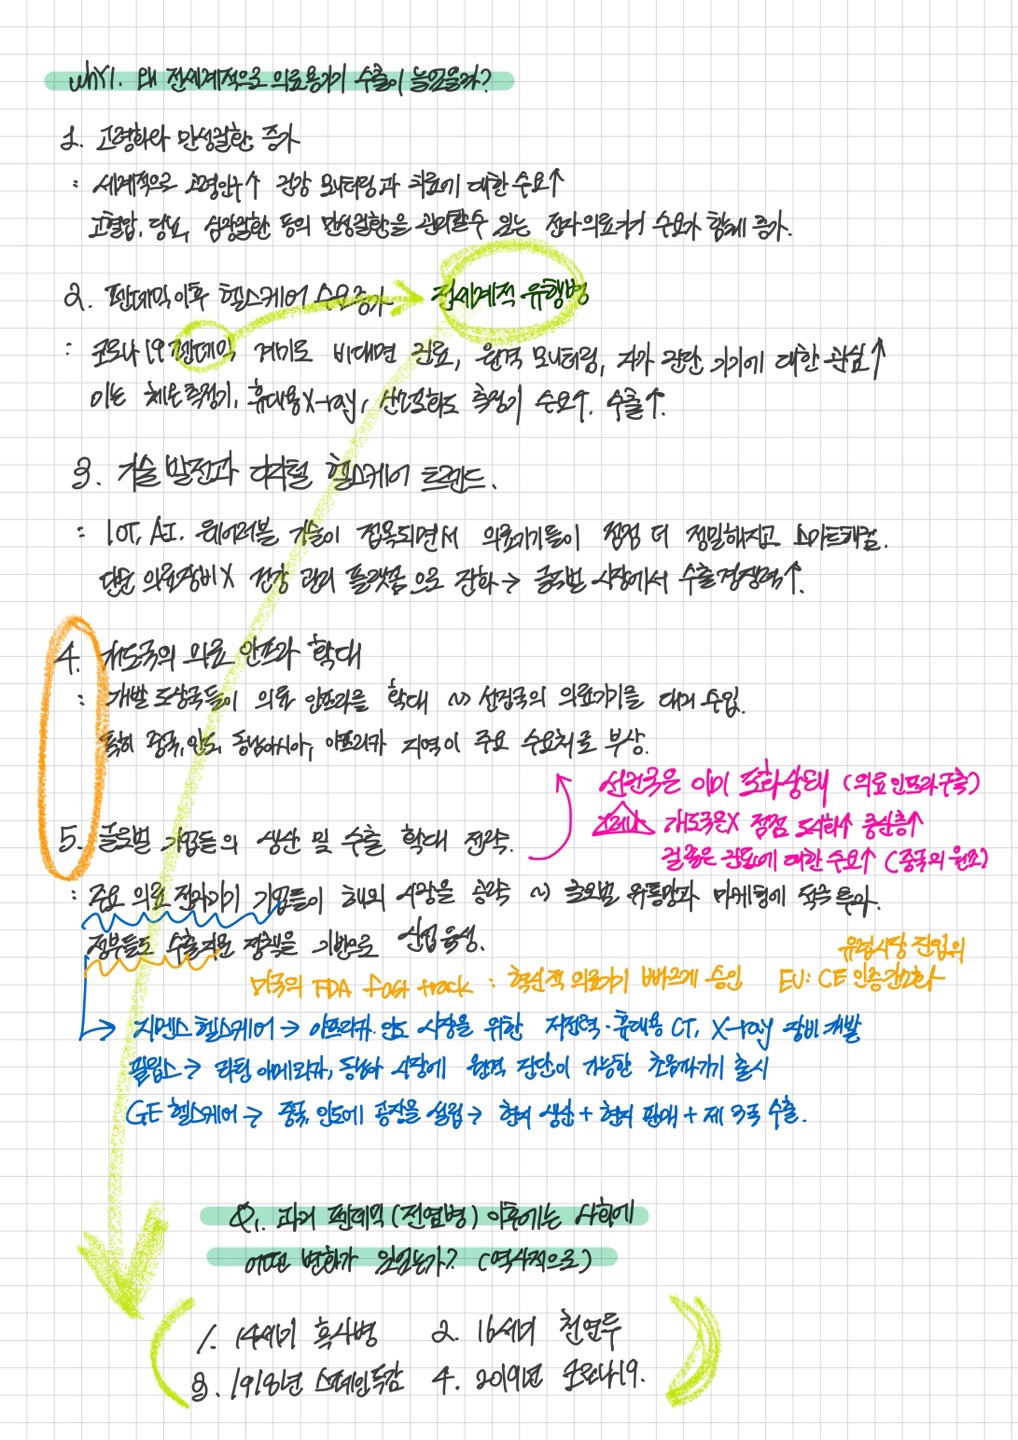 Why1. 왜 전세계적으로 의료용기기 수출이 늘었을까?
1. 고령화와 만성질환 증가
: 세계적으로 고령인구↑ 건강 모니터링과 치료에 대한 수요↑
고혈압, 당뇨, 심장질환 등의 만성질환을 관리할 수 있는 전자의료기기 수요가 함께 증가.
2. 팬데믹 이후 헬스케어 수요증가 → 전세계적 유행병
: 코로나19 팬데믹 계기로 비대면 진료, 원격 모니터링, 자가 진단 기기에 대한 관심↑
이는 체온측정기, 휴대용 X-ray, 산소포화도 측정기 수요↑. 수출↑.
3. 기술 발전과 디지털 헬스케어 트렌드.
: IOT, AI. 웨어러블 기술이 접목되면서 의료기기들이 점점 더 정밀해지고 스마트해짐.
단순 의료장비X 건강 관리 플랫폼으로 진화 → 글로벌 시장에서 수출경쟁력↑.
4. 개도국의 의료 인프라 확대
: 개발 도상국들이 의료 인프라를 확대 ~> 선진국의 의료기기를 대거 수입.
특히 중국, 인도, 동남아시아, 아프리카 지역이 주요 수요처로 부상.
선진국은 이미 포화상태 (의료인프라구축)
개도국은X 점점 도시화↑ 중산층↑
질좋은 진료에 대한 수요↑ (중국의 원조)
5. 글로벌 기업들의 생산 및 수출 확대 전략.
: 주요 의료 전자기기 기업들이 해외 시장을 공략 ~> 글로벌 유통망과 마케팅에 적극 투자.
정부들도 수출지원 정책을 기반으로 산업육성.
유럽시장 진입의
미국의 FDA fast track : 혁신적 의료기기 빠르게 승인 EU: CE 인증간소화
→ 지멘스 헬스케어 → 아프리카·인도 시장을 위한 저전력·휴대용 CT, X-ray 장비 개발
필립스 → 라틴 아메리카, 동남아 시장에 원격 진단이 가능한 초음파기기 출시
GE 헬스케어 → 중국, 인도에 공장을 설립 → 현지 생산 + 현지 판매 + 제 3국 수출.
Q1. 과거 팬데믹(전염병) 이후에는 사회에
어떤 변화가 있었는가? (역사적으로)
1. 14세기 흑사병 2. 16세기 천연두
3. 1918년 스페인독감 4. 2019년 코로나19.